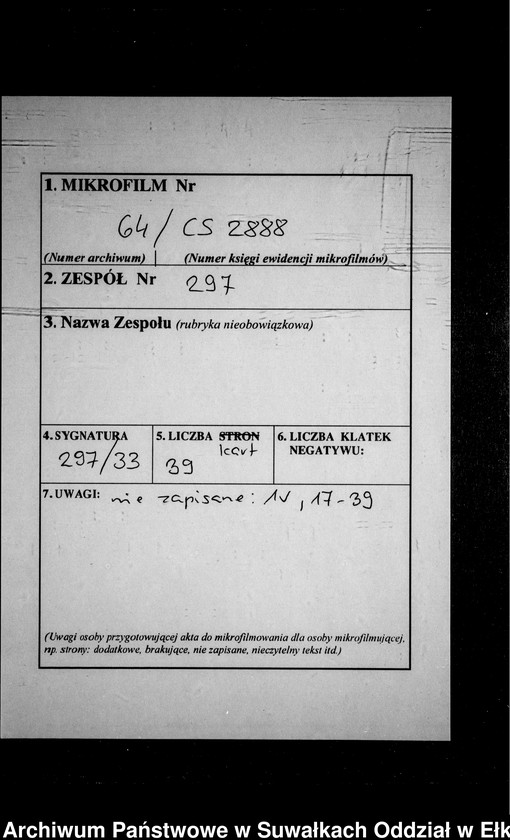 1. MIKROFILM Nr
64 / CS 2888
(Numer archiwum) (Numer księgi ewidencji mikrofilmów)
2. ZESPÓŁ Nr 297
3. Nazwa Zespołu (rubryka nieobowiązkowa)
4. SYGNATURA 5. LICZBA STRON 6. LICZBA KLATEK
kart NEGATYWU:
297/33 39
7. UWAGI: nie zapisane: 1v, 17-39
(Uwagi osoby przygotowującej akta do mikrofilmowania dla osoby mikrofilmującej,
np. strony: dodatkowe, brakujące, nie zapisane, nieczytelny tekst itd.)
Archiwum Państwowe w Suwałkach Oddział w Ełk